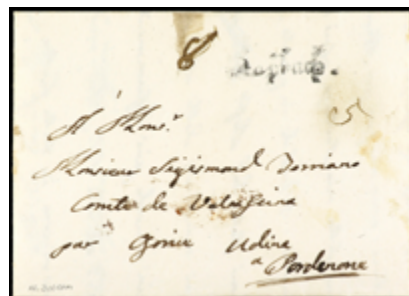 8
Laybach.
A Mons.r
Monsieur Sigismond Torriano
Comte de Valsassina
par Gorice Udine
a Pordenone